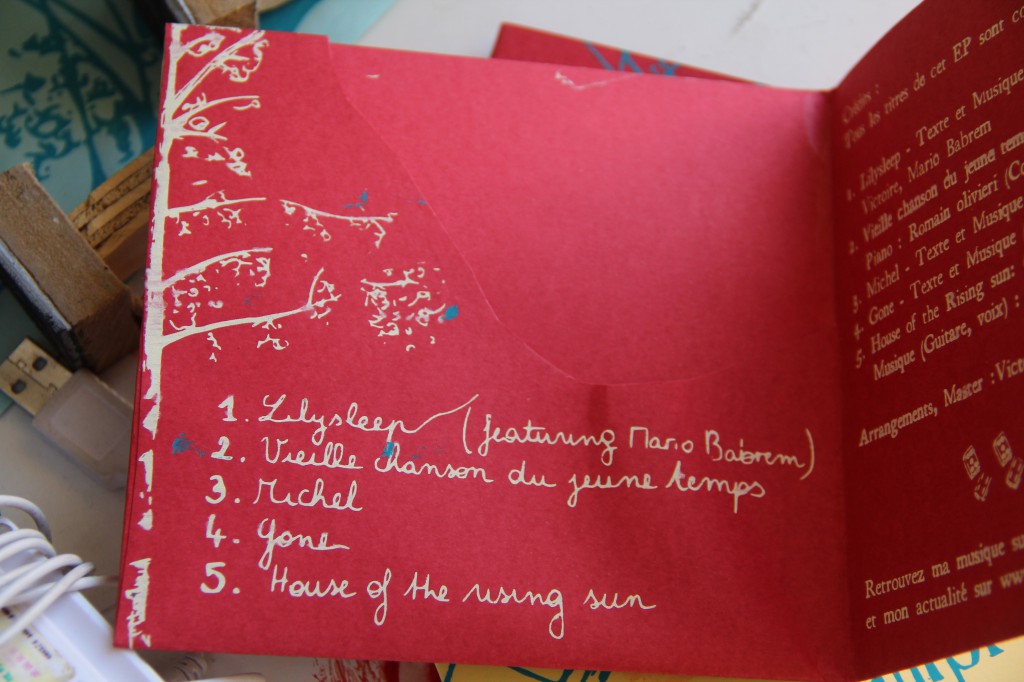 1. Lilysleep (featuring Mario Babrem)
2. Vieille chanson du jeune temps
3. Michel
4. Gone
5. House of the rising sun
Crédits :
Tous les titres de cet EP sont
1. Lilysleep - Texte et Musique
Victoire, Mario Babrem
2. Vieille chanson du jeune
Piano : Romain olivieri
3- Michel - Texte et Musique
4- Gone - Texte et Musique
5- House of the Rising sun:
Musique (Guitare, voix) :
Arrangements, Master :
Retrouvez ma musique
et mon actualité sur